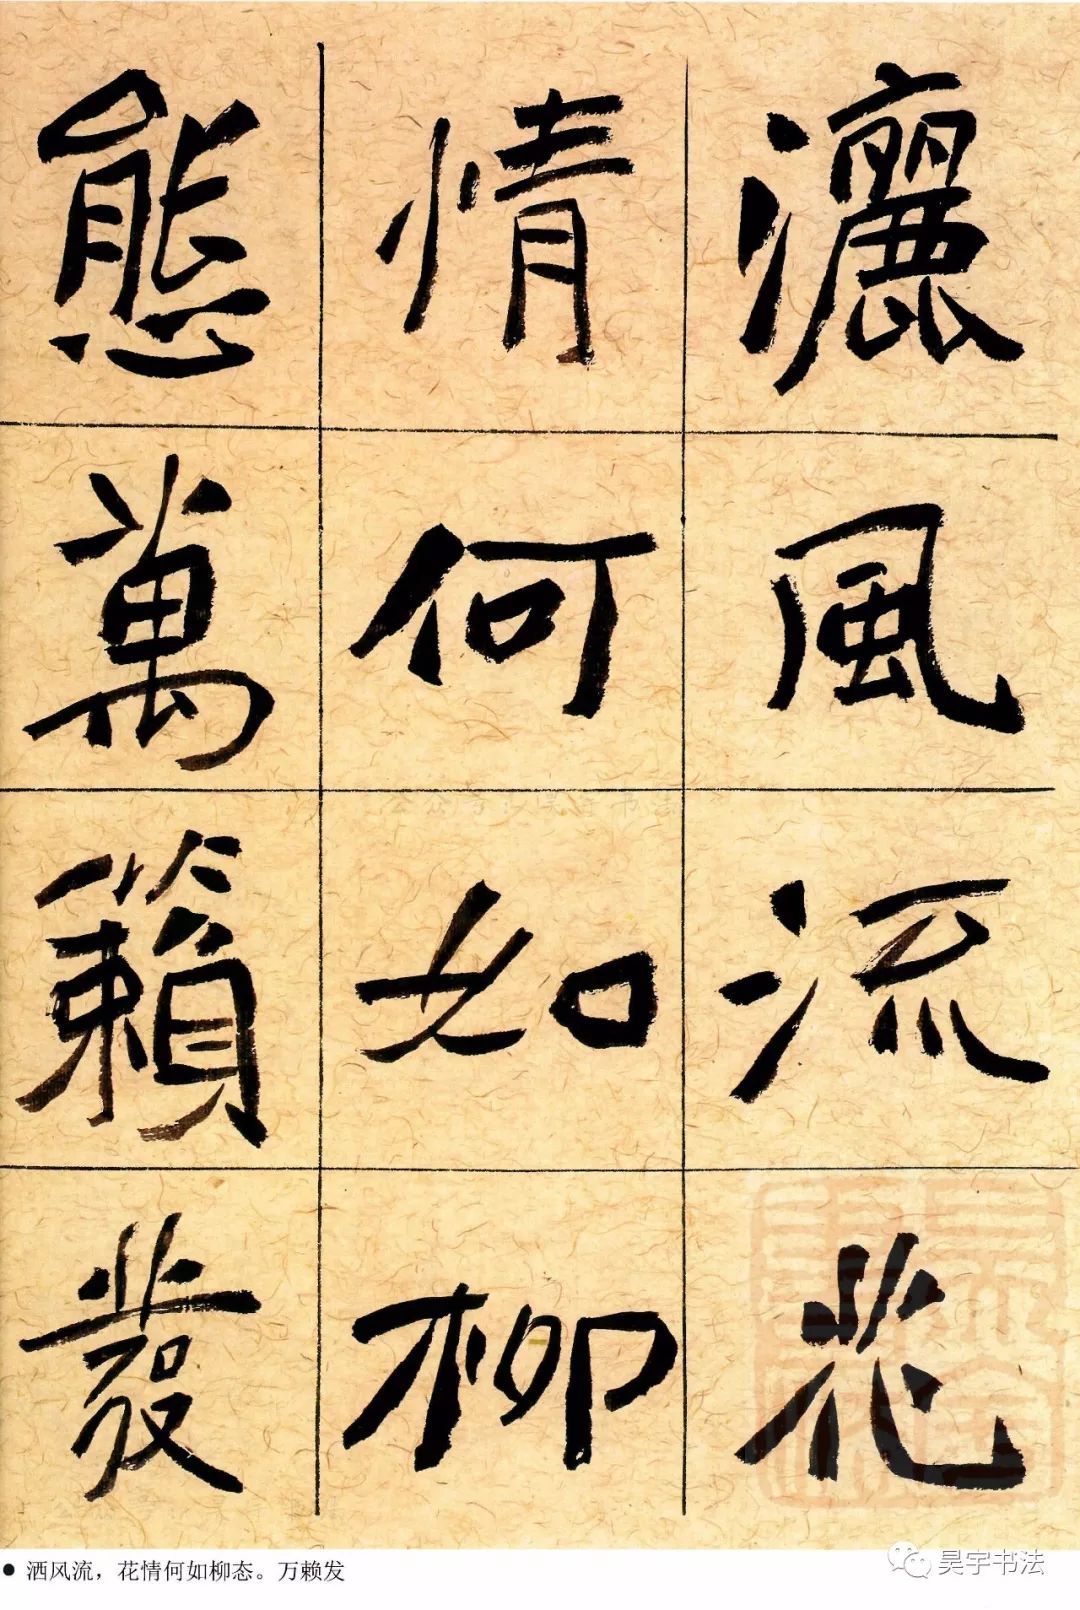 灑風流花
情何如柳
態萬籟發
● 洒风流，花情何如柳态。万赖发
昊宇书法